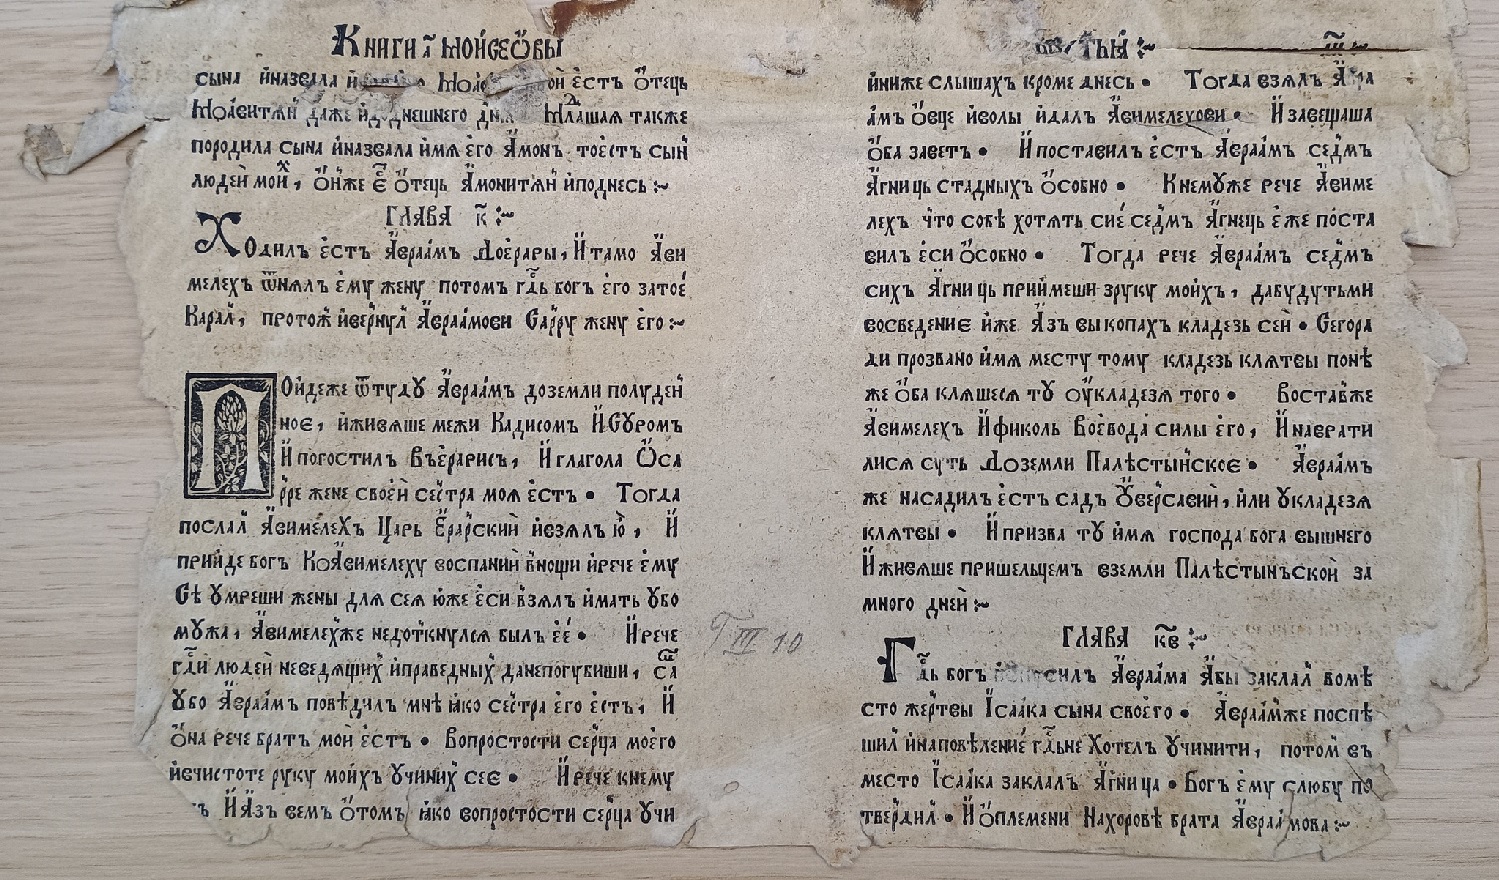 Книги а҃ Мойсеѡвы
сына и҆назвала Моа ой е҆стъ ѻ҆тець
Моа҆витѧ́н даже и҆додне́шнего дн Мла́дшаꙗ также
породила сына и҆назвала и҆мѧ е҆го А҆мон тоестъ сын҆
людей мои́х, ѻ҆нже е҆сть ѻ҆тець А҆монитѧ́н и҆поднесь :~
ГЛАВА к҃ :~
Ходилъ е҆стъ А҆враа́мъ До́е҆рары, И҆тамо А҆ви
мелехъ ѿнѧлъ е҆му жену потомъ гд҃ь богъ е҆го затое́
Карал̾, протож̾ и҆вернул̾ А҆враа́мови Сарру жену е҆го :~
Пойдеже ѿтуду А҆враа́мъ доземли полуден̾
ное, и҆живѧше межи Кадисомъ И҆Суромъ
И҆погостилъ Въе҆рарисъ, И҆глагола Ѻ҆Са
рре жене своей сестра моꙗ е҆стъ • Тогда
послал̾ А҆виме́лехъ Царь Е҆рарский и҆взѧлъ ю҆, И҆
прииде богъ Коа҆вимелеху воспаний вно́щи и҆рече е҆му
Сѣ умреши жены длѧ сеꙗ юже е҆си взѧлъ и҆мать убо
мужа, А҆вимелех̾же недоткнулсѧ былъ е҆е́ • И҆рече
гд҃и людей неведѧщих̾ и҆праведных̾ данепогубиши,
убо А҆враа́мъ повѣдилъ мнѣ ꙗ҆ко сестра е҆го е҆стъ, И҆
ѻ҆на рече братъ мой е҆стъ • Вопростости серца моего
и҆вчистоте руку моихъ учиних̾ сее • И҆рече кнему
И҆А҆зъ вемъ ѻ҆томъ ꙗ҆ко вопростости серца учи
тыѧ :~
и҆ниже слышахъ кроме днесь • Тогда взѧлъ А҆вра
а́мъ ѻ҆вце и҆волы и҆далъ А҆вимелехови • И҆завещаша
ѻ҆ба заветъ • И҆поставилъ е҆стъ А҆враа́мъ седмъ
А҆гниць стадныхъ ѻ҆собно • Кнемуже рече А҆виме
лехъ что собѣ хотѧть сие́ седмъ А҆гнець е҆же поста
вилъ е҆си ѻ҆собно • Тогда рече А҆враа́мъ седмъ
сихъ А҆гниць приимеши зруку моихъ, дабудутьми
восведение и҆же А҆зъ выкопахъ кладезь сей • Сегора
ди прозвано и҆мѧ месту тому кладезь клѧтвы понѣ
же ѻ҆ба клѧшесѧ ту оу҆кладезѧ того • Востав̾же
А҆вимелехъ И҆фиколь Воевода силы е҆го, И҆наврати
лисѧ суть Доземли Палѣстынское • А҆враа́мъ
же насадилъ е҆стъ садъ Ѹ҆версавии, и҆ли укладезѧ
клѧтвы • И҆призва ту и҆мѧ господа бога вышнего
И҆живѧше пришельцемъ вземли Палѣстынъской за
много дней :~
ГЛАВА кв҃ :~
Гд҃ь богъ А҆враа́ма А҆бы заклал̾ вомѣ
сто жертвы І҆саа́ка сына своего • А҆враа́м̾же поспѣ
шил̾ и҆наповѣление гд҃ьне Хотелъ учинити, потом̾ въ
место І҆саа́ка заклалъ А҆гница • Богъ е҆му слюбу по
твердил̾ • И҆ѻ҆племени Нахоровѣ брата А҆враа́мова :~
Т III 10